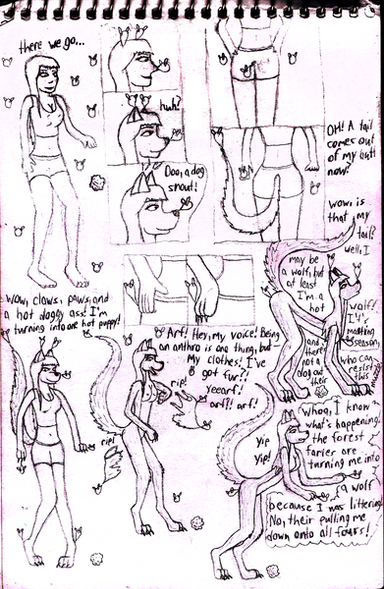 there we go...
huh?
Ooo, a dog
snout!
OH! A tail
comes out
of my butt
now?
Wow, is
that my
tail?
Well, I
may be
a wolf, but
at least
I'm a
hot
wolf!
It's
mating
season,
and
there's
not a
dog out
there
who can
resist
this
Wow, claws, paws, and
a hot doggy ass! I'm
turning into one hot puppy!
Arf! Hey, my voice! Being
an anthro is one thing, but
my clothes, I've
got fur!?
rip!
yeearf!
arf! arf!
rip!
yip
yip!
Whoa, I know
what's happening,
the forest
faries are
turning me into
a wolf
because I was littering
No, their pulling me
down onto all fours!